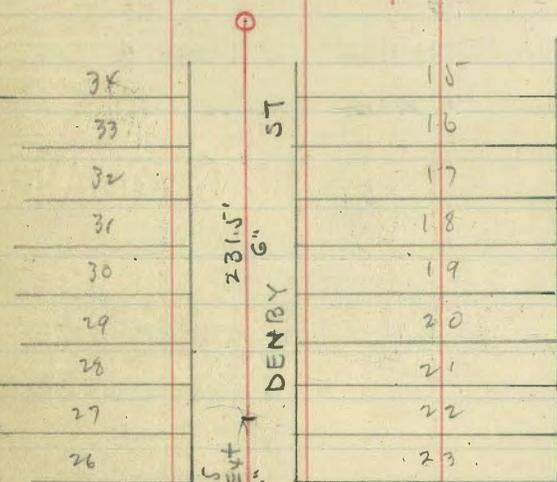 34
33
32
31
30
29
28
27
26
231.5'
6"
DENBY ST
Ext
15
16
17
18
19
20
21
22
23